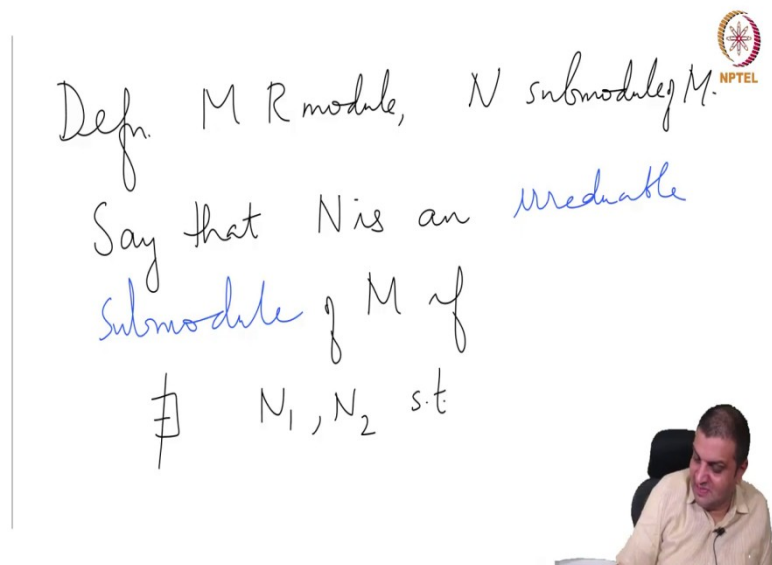 NPTEL
Defn. M R module, N submodule of M.
Say that N is an irreducible
submodule of M if
∄ N₁, N₂ s.t